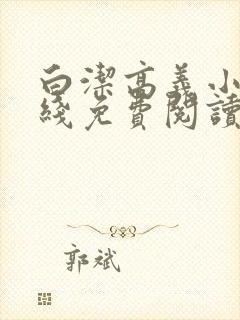 白潔高義小
綫免費閱讀
郭斌